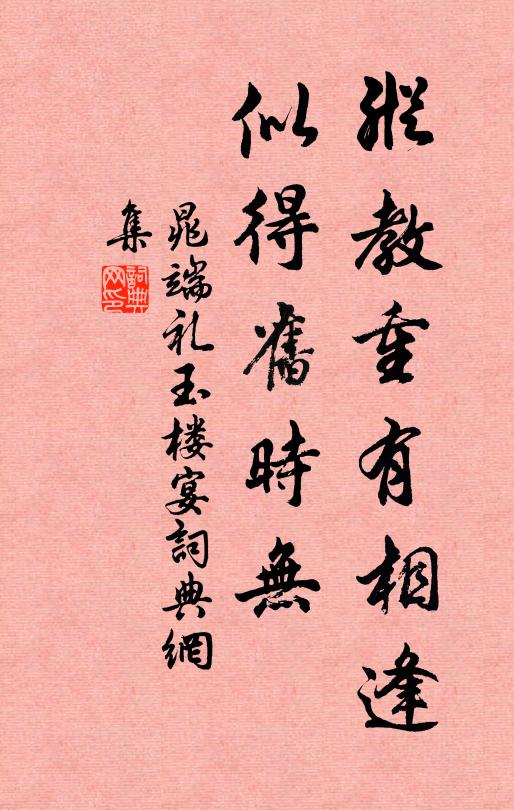 縱教重有相逢
似得舊時無
晁端礼玉楼宴詞典網
集
詞典
网印